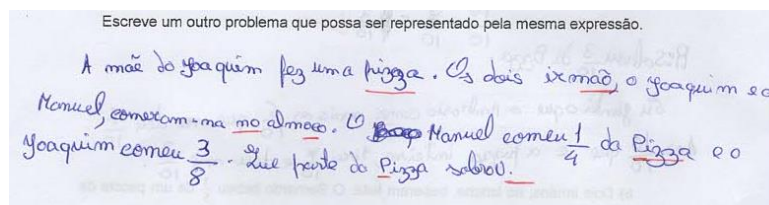 Escreve um outro problema que possa ser representado pela mesma expressão.
A mãe do Joaquim fez uma pizza. Os dois irmão, o Joaquim e o
Manuel, comeram-na no almoço. O Manuel comeu 1/4 da Pizza e o
Joaquim comeu 3/8. Que parte da Pizza sobrou.